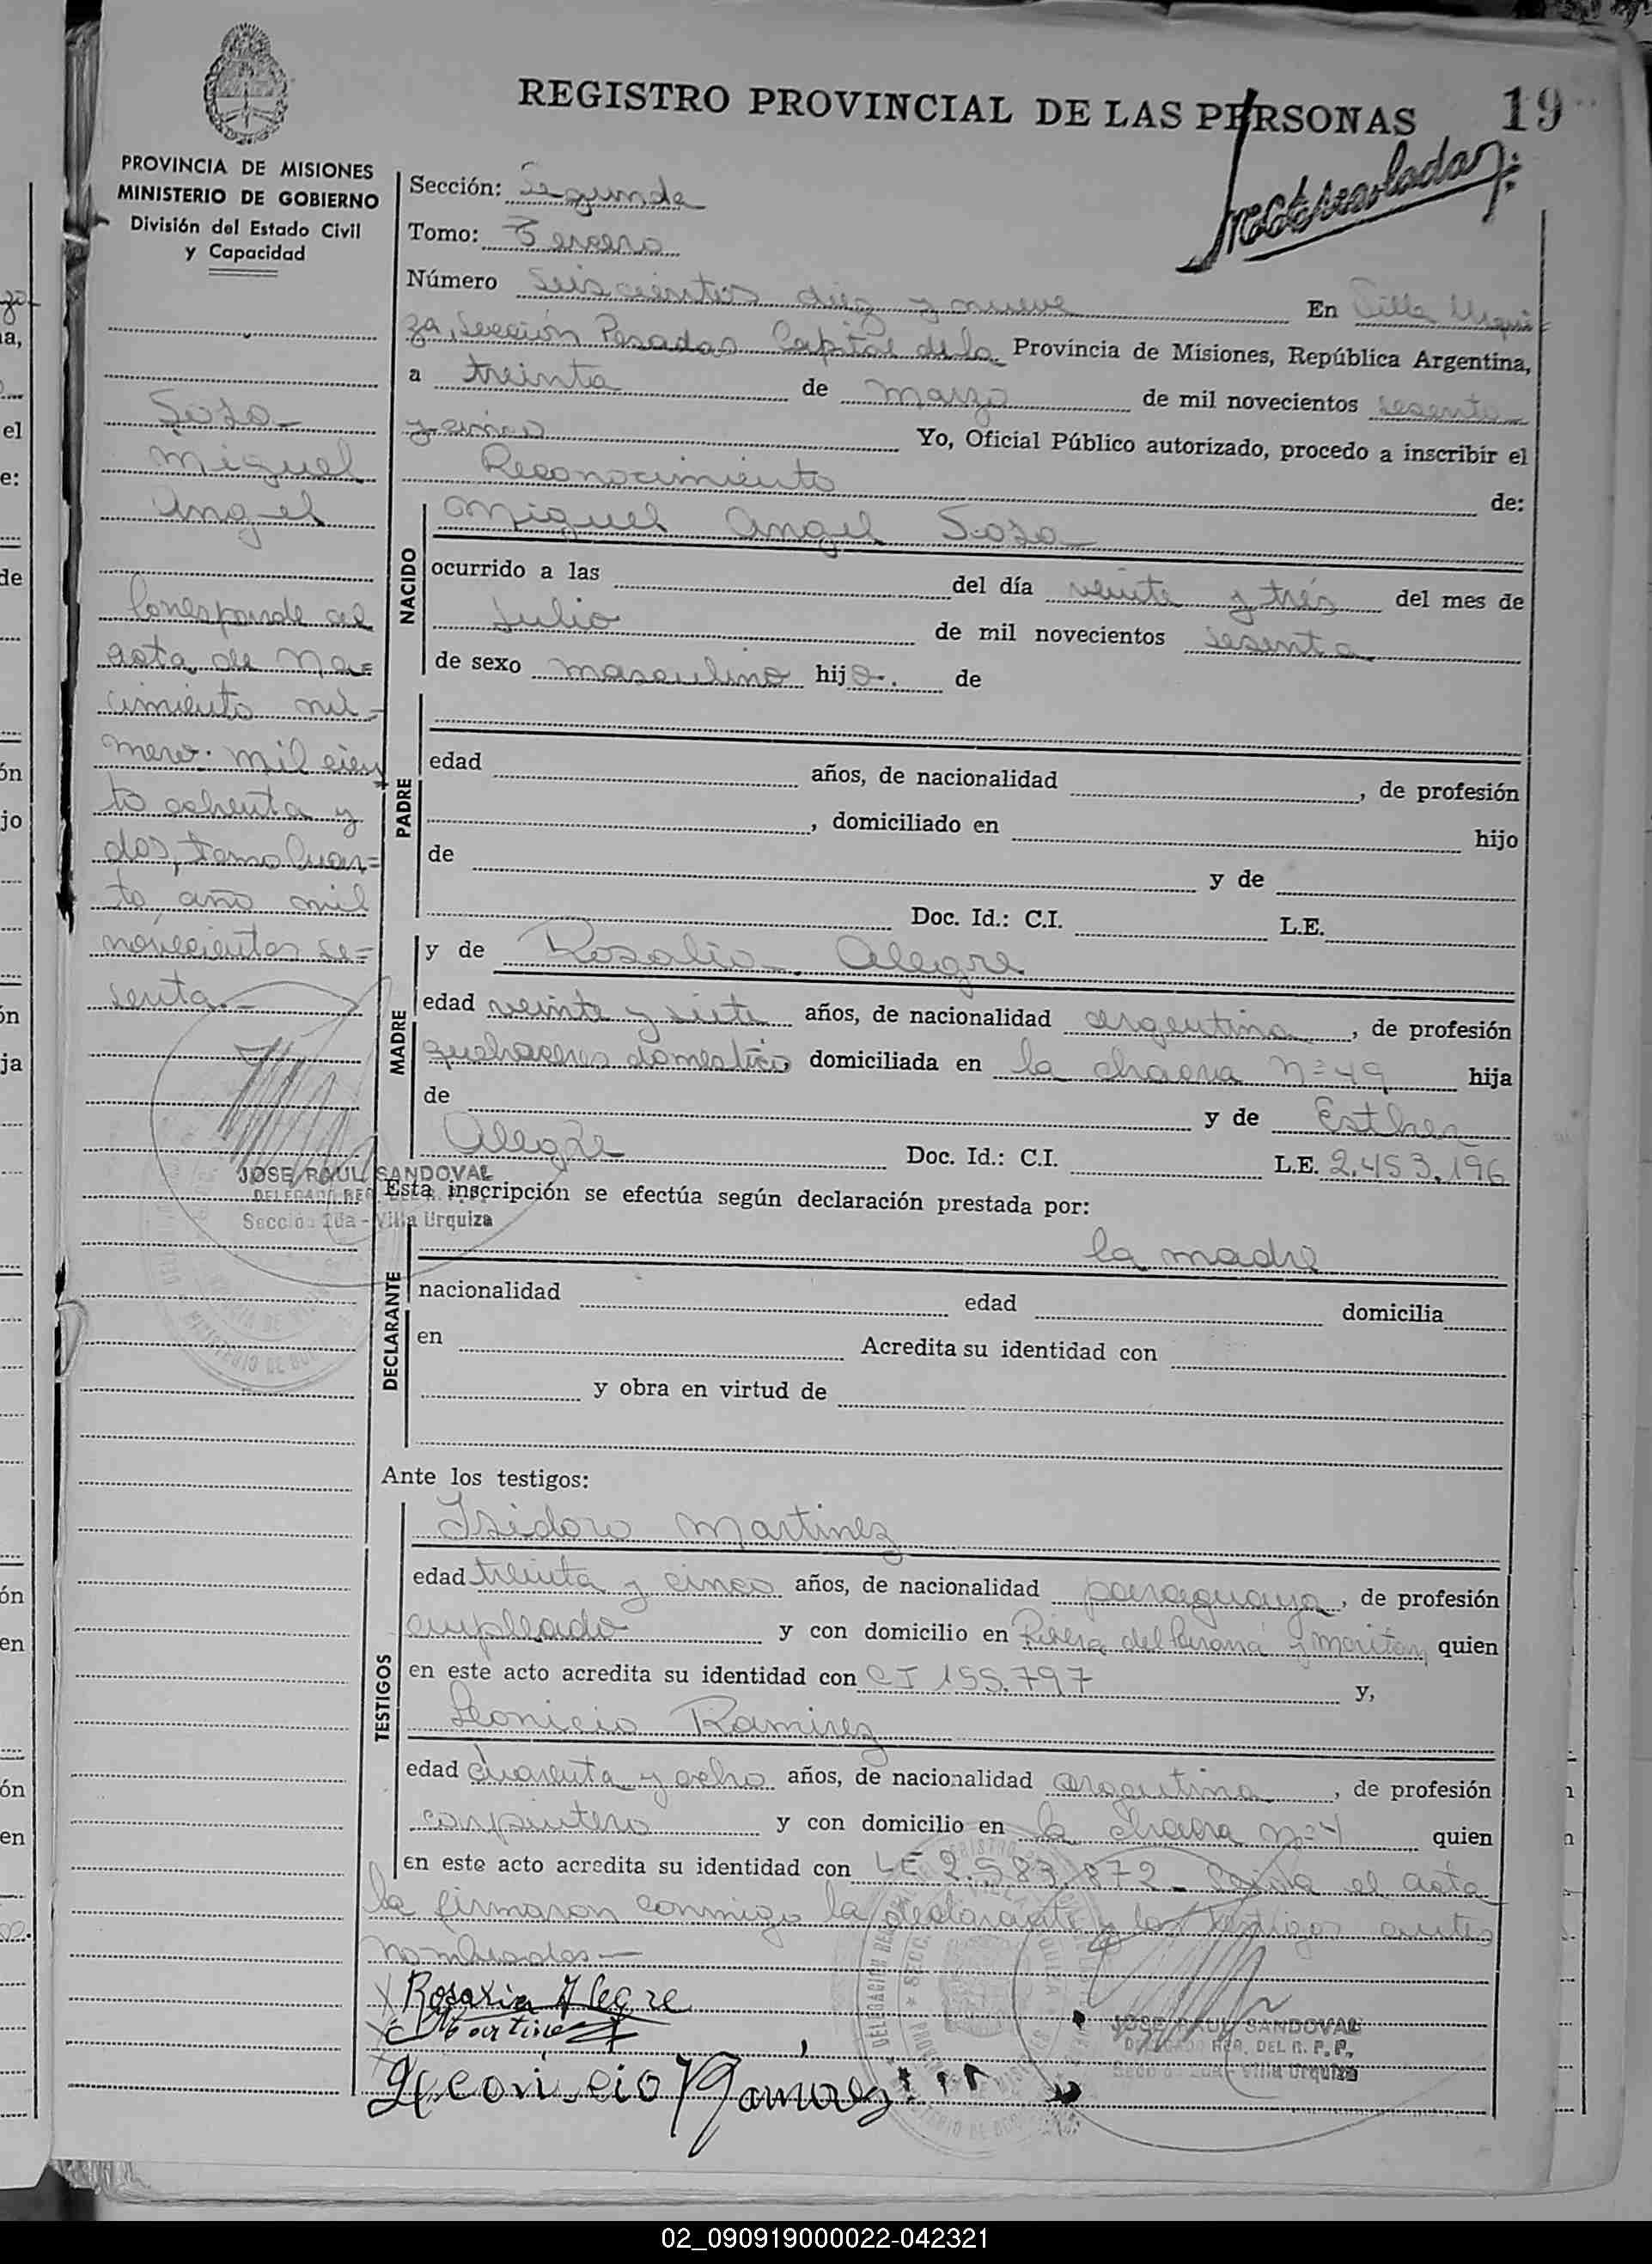 REGISTRO PROVINCIAL DE LAS PERSONAS 19
PROVINCIA DE MISIONES
MINISTERIO DE GOBIERNO
División del Estado Civil
y Capacidad
Soto
Miguel
Angel
Corresponde al
acta de Na=
cimiento nú=
mero: mil cien
to ochenta y
dos, tomo Cuar=
to, año mil
novecientos se=
senta.-
JOSE RAUL SANDOVAL
Sección 2da - Villa Urquiza
Sección: Segunda
Tomo: Tercero
Número Seiscientos diez y nueve En Villa Urqui
za, Sección Posadas Capital de la Provincia de Misiones, República Argentina,
a treinta de marzo de mil novecientos sesenta
y cinco Yo, Oficial Público autorizado, procedo a inscribir el
Reconocimiento de:
NACIDO
Miguel Angel Soto
ocurrido a las del día veinte y trés del mes de
Julio de mil novecientos sesenta
de sexo masculino hijo. de
PADRE
edad años, de nacionalidad , de profesión
, domiciliado en hijo
de y de
Doc. Id.: C.I. L.E.
MADRE
y de Alegre
edad veinte y siete años, de nacionalidad argentina, de profesión
quehaceres domestico domiciliada en la chacra Nº 49 hija
de y de Esther
Alegre Doc. Id.: C.I. L.E. 2.453.196
Esta inscripción se efectúa según declaración prestada por:
DECLARANTE
la madre
nacionalidad edad domicilia
en Acredita su identidad con
y obra en virtud de
Ante los testigos:
TESTIGOS
Isidoro Martinez
edad treinta y cinco años, de nacionalidad paraguaya, de profesión
empleado y con domicilio en del Paraná y quien
en este acto acredita su identidad con CI 155.797 y,
Leonicio Ramirez
edad cuarenta y ocho años, de nacionalidad argentina, de profesión
carpintero y con domicilio en la chacra nº 4 quien
en este acto acredita su identidad con LE 2.583.872 - el acta
la firmaron conmigo la declarante y los testigos antes
nombrados -
Alegre
Martinez
Leonicio Ramirez
JOSE RAUL SANDOVAL
DELEGADO REG. DEL R. P. P.
Sección 2da - Villa Urquiza
02_090919000022-042321